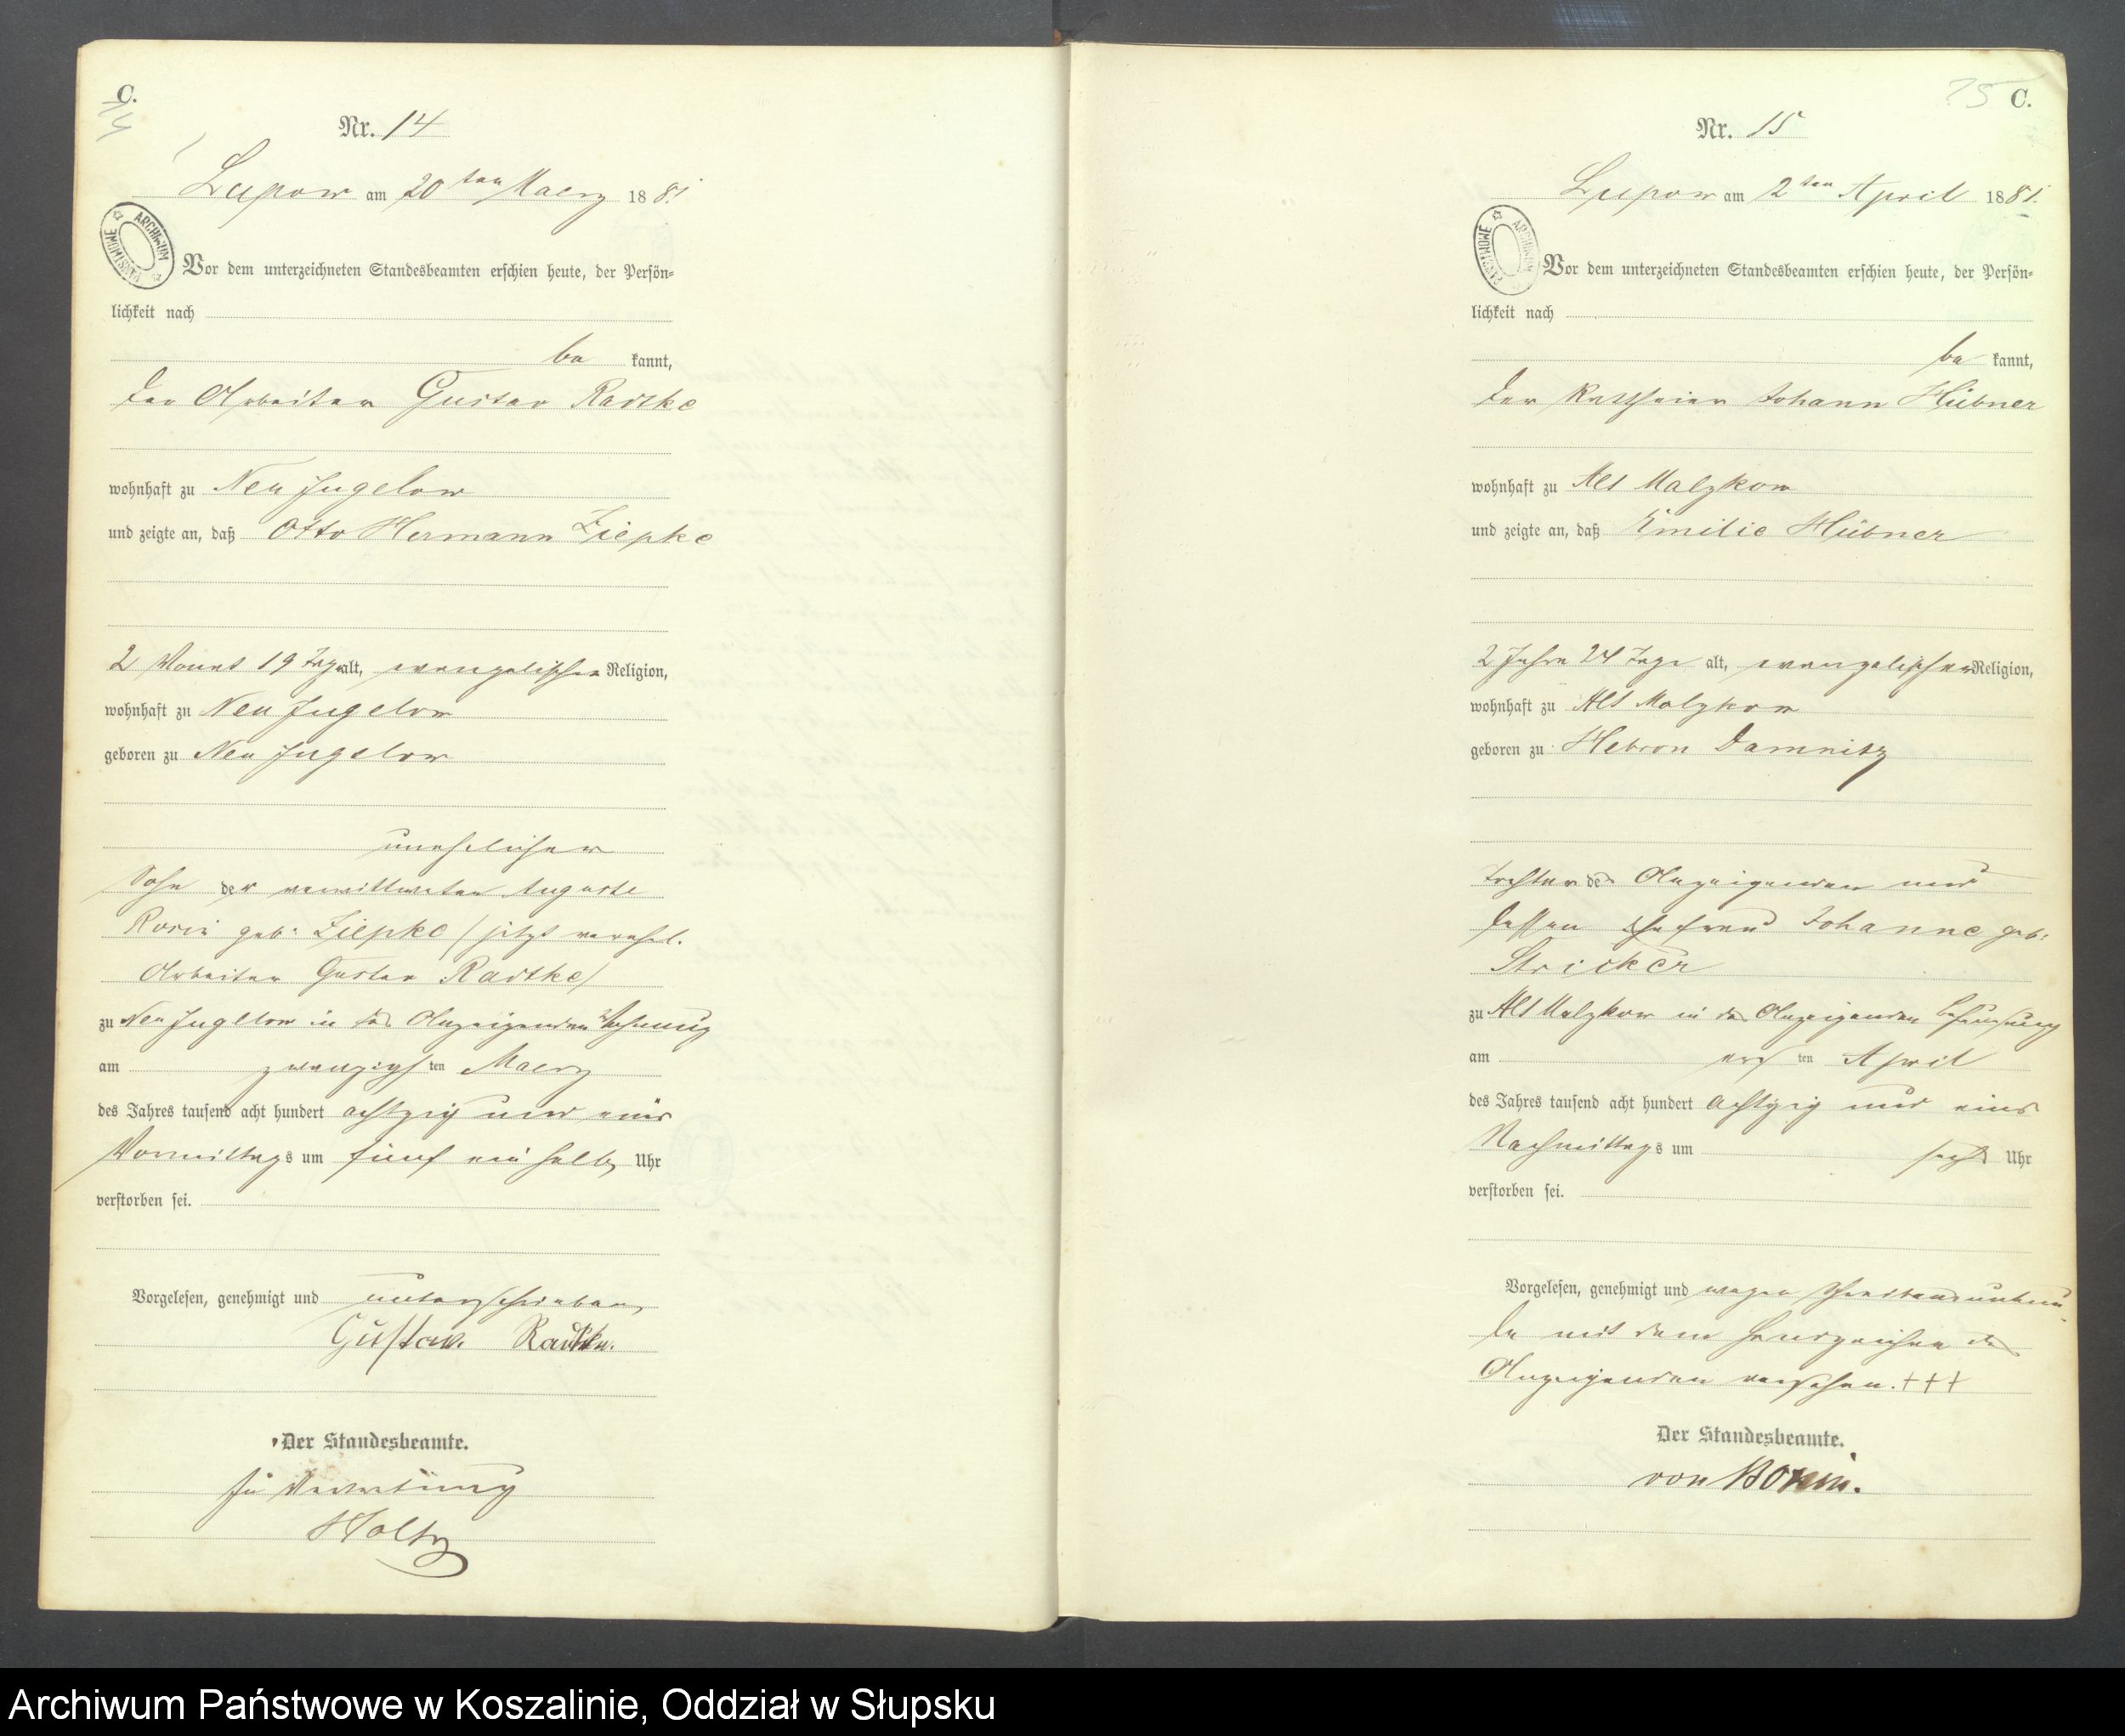 C.
14
Nr. 14
Lupow am 20ten Maerz 1881.
ARCHIWUM PAŃSTWOWE
Vor dem unterzeichneten Standesbeamten erschien heute, der Persön-
lichkeit nach
be kannt,
der Arbeiter Gustav Radtke
wohnhaft zu Neu Jugelow
und zeigte an, daß Otto Hermann Ziepke
2 Monat 19 Tage alt, evangelischer Religion,
wohnhaft zu Neu Jugelow
geboren zu Neu Jugelow
unehelicher
Sohn der verwittweten Auguste
Rosin geb. Ziepke / jetzt verehel.
Arbeiter Gustav Radtke /
zu Neu Jugelow in des Anzeigenden Wohnung
am zwanzigsten Maerz
des Jahres tausend acht hundert achtzig und eins
Vormittags um fünf ein halb Uhr
verstorben sei.
Vorgelesen, genehmigt und unterschrieben
Gustav Radtke.
Der Standesbeamte.
In Vertretung
Holtz
15 C.
Nr. 15
Lupow am 2ten April 1881.
ARCHIWUM PAŃSTWOWE
Vor dem unterzeichneten Standesbeamten erschien heute, der Persön-
lichkeit nach
be kannt,
der Johann Hübner
wohnhaft zu Alt Malzkow
und zeigte an, daß Emilie Hübner
2 Jahre 24 Tage alt, evangelischer Religion,
wohnhaft zu Alt Malzkow
geboren zu Hebron Damnitz
Tochter des Anzeigenden und
dessen Ehefrau Johanne geb.
Stricker
zu Alt Malzkow in des Anzeigenden Behausung
am ersten April
des Jahres tausend acht hundert achtzig und eins
Nachmittags um sechs Uhr
verstorben sei.
Vorgelesen, genehmigt und wegen Schreibensunkun-
de mit dem Handzeichen des
Anzeigenden versehen. +++
Der Standesbeamte.
von Bonin.
Archiwum Państwowe w Koszalinie, Oddział w Słupsku